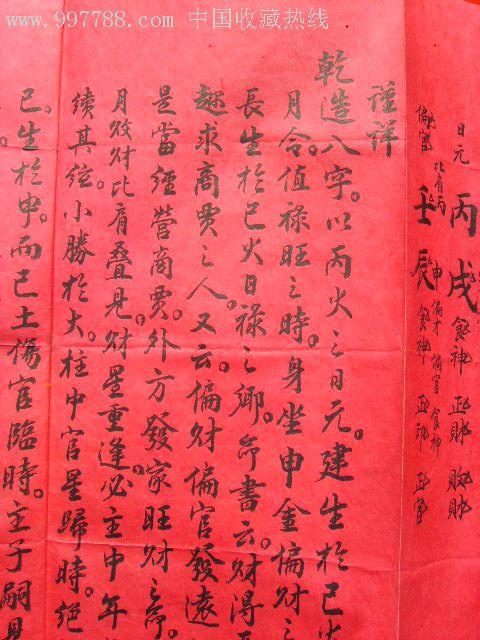 www.997788.com 中国收藏热线
日元 丙戌 食神 正財 敗財
比肩丙 申 偏才 偏官 食神
偏官 壬辰 食神 正印 正官
註詳
乾造八字。以丙火之日元。建生於巳火
月令。值祿旺之時。身坐申金偏財之
長生於巳火日祿之鄉。命書云。財得
趣求商賈之人。又云。偏財偏官發遠
是當經營商賈。外方發家旺財之命。
月敗財比肩叠見。財星重逢必主中年
續其絃。小勝於大。柱中官星歸時。絕
巳。生於申。而己土傷官臨時。主子嗣